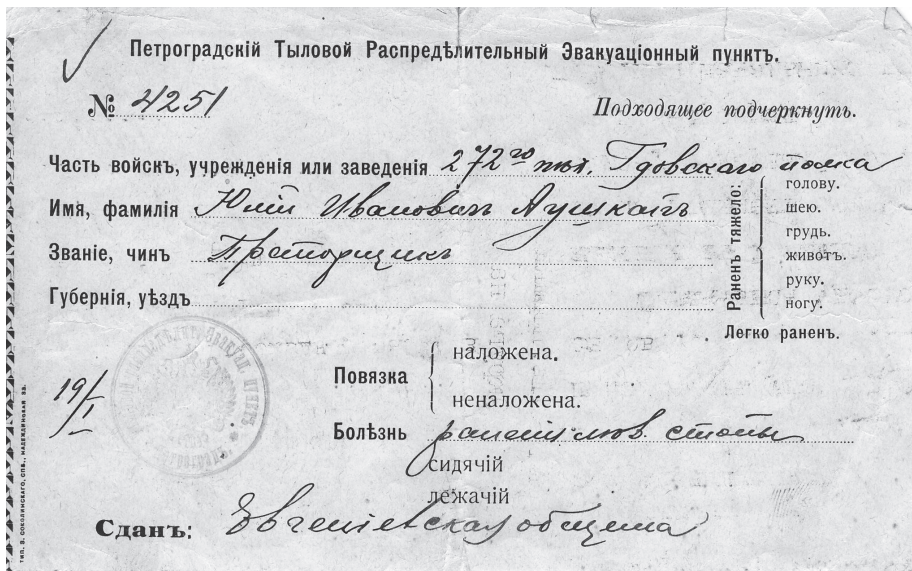 Петроградскій Тыловой Распредѣлительный Эвакуаціонный пунктъ.
№ 4251
Подходящее подчеркнуть.
Часть войскъ, учрежденія или заведенія 272го пѣх. Гдовскаго полка
Имя, фамилія Юлій Ивановичъ
Званіе, чинъ Прапорщикъ
Губернія, уѣздъ
Раненъ тяжело:
голову.
шею.
грудь.
животъ.
руку.
ногу.
Легко раненъ.
19/I
Повязка
наложена.
неналожена.
Болѣзнь раненіе лѣв. стопы
сидячій
лежачій
Сданъ: Евгеніевская община
ТИП. В. СОКОЛИНСКАГО, СПБ., НАДЕЖДИНСКАЯ